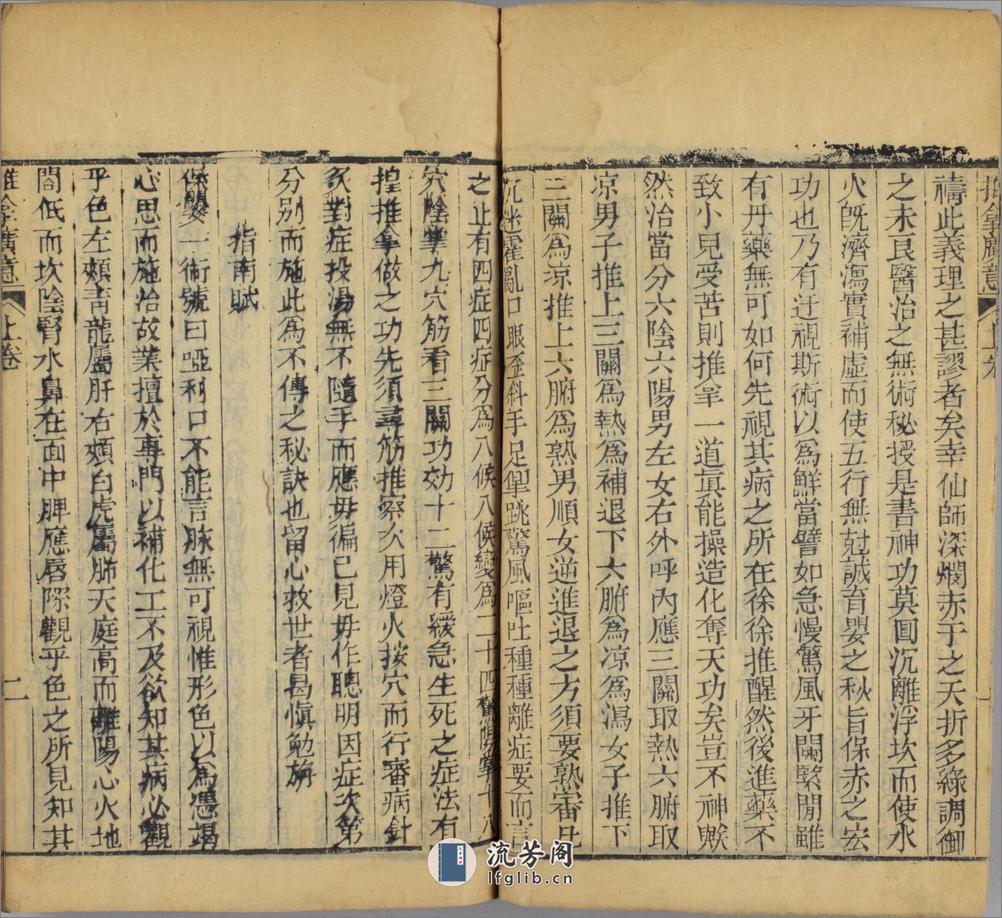 推拿廣意 上卷 一
禱此義理之甚謬者矣幸仙師深憫赤子之夭折多緣調御
之未良醫治之無術秘授是書神功莫圓沉離浮坎而使水
火旣濟瀉實補虛而使五行無尅誠育嬰之秋旨保赤之宏
功也乃有迂視斯術以爲鮮當譬如急慢驚風牙關緊閉雖
有丹藥無可如何先視其病之所在徐徐推醒然後進藥不
致小兒受苦則推拿一道眞能操造化奪天功矣豈不神歟
然治當分六陰六陽男左女右外呼內應三關取熱六腑取
凉男子推上三關爲熱爲補退下六腑爲凉爲瀉女子推下
三關爲凉推上六腑爲熟男順女逆進退之方須要熟審凡
沉迷霍亂口眼歪斜手足掣跳驚風嘔吐種種雜症要而言
之止有四症四症分爲八候八候變爲二十四驚陽掌十八
穴陰掌九穴筋看三關功効十二驚有緩急生死之症法有
推拿做之功先須尋筋推察次用燈火按穴而行審病針
灸對症投湯無不隨手而應毋偏己見毋作聰明因症次第
分別而施此爲不傳之秘訣也留心救世者曷愼勉旃
指南賦
保嬰一術號曰啞科口不能言脉無可視惟形色以爲憑竭
心思而施治故業擅於專門以補化工不及欲知其病必觀
乎色左頰青龍屬肝右頰白虎屬肺天庭高而離陽心火地
閣低而坎陰腎水鼻在面中脾應唇際觀乎色之所見知其
推拿廣意 上卷 二
流芳阁
lfglib.cn